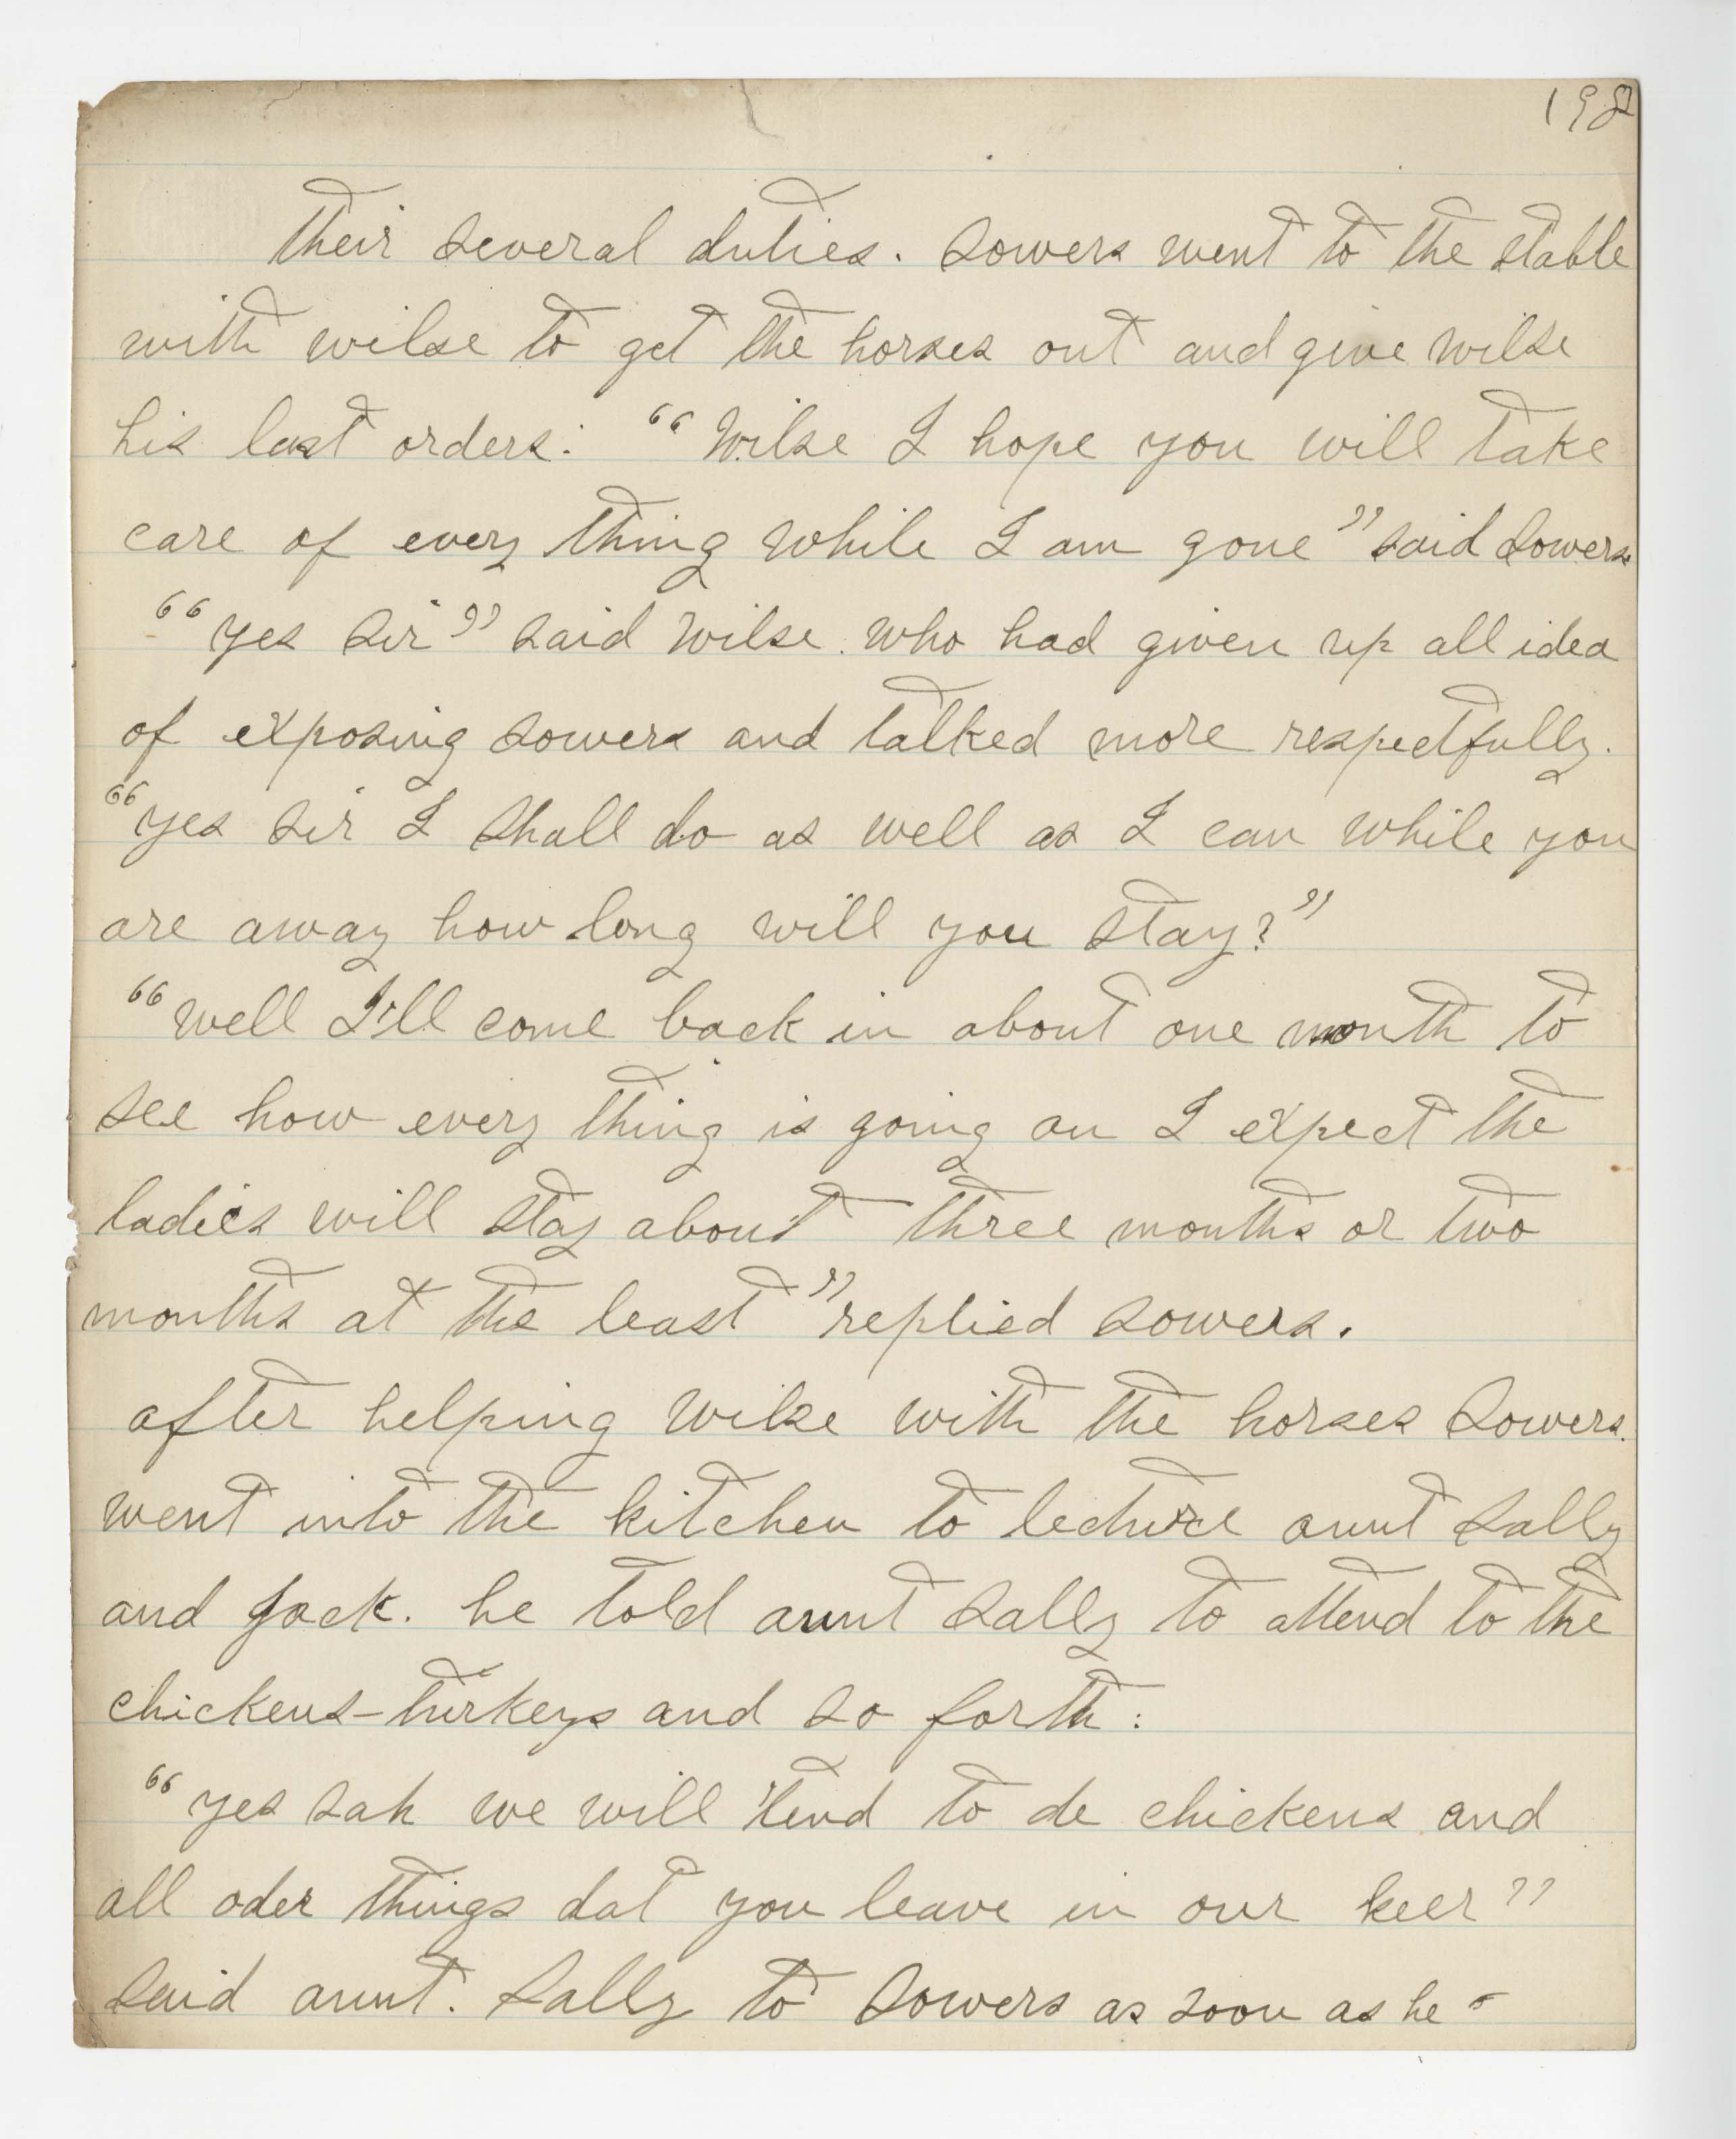 198
their several duties. Sowers went to the stable
with wilse to get the horses out and give wilse
his last orders: "Wilse I hope you will take
care of every thing while I am gone" said Sowers
"yes sir" said wilse. who had given up all idea
of exposing sowers and talked more respectfully.
"yes sir I shall do as well as I can while you
are away how long will you stay?"
"well I'll come back in about one month to
see how every thing is going on I expect the
ladies will stay about three months or two
months at the least" replied sowers.
after helping wilse with the horses Sowers.
went into the kitchen to lecture aunt Sally
and Jack. he told aunt Sally to attend to the
chickens-turkeys and so forth:
"yes sah we will 'tend to de chickens and
all oder things dat you leave in our keer"
said aunt. Sally to Sowers as soon as he -